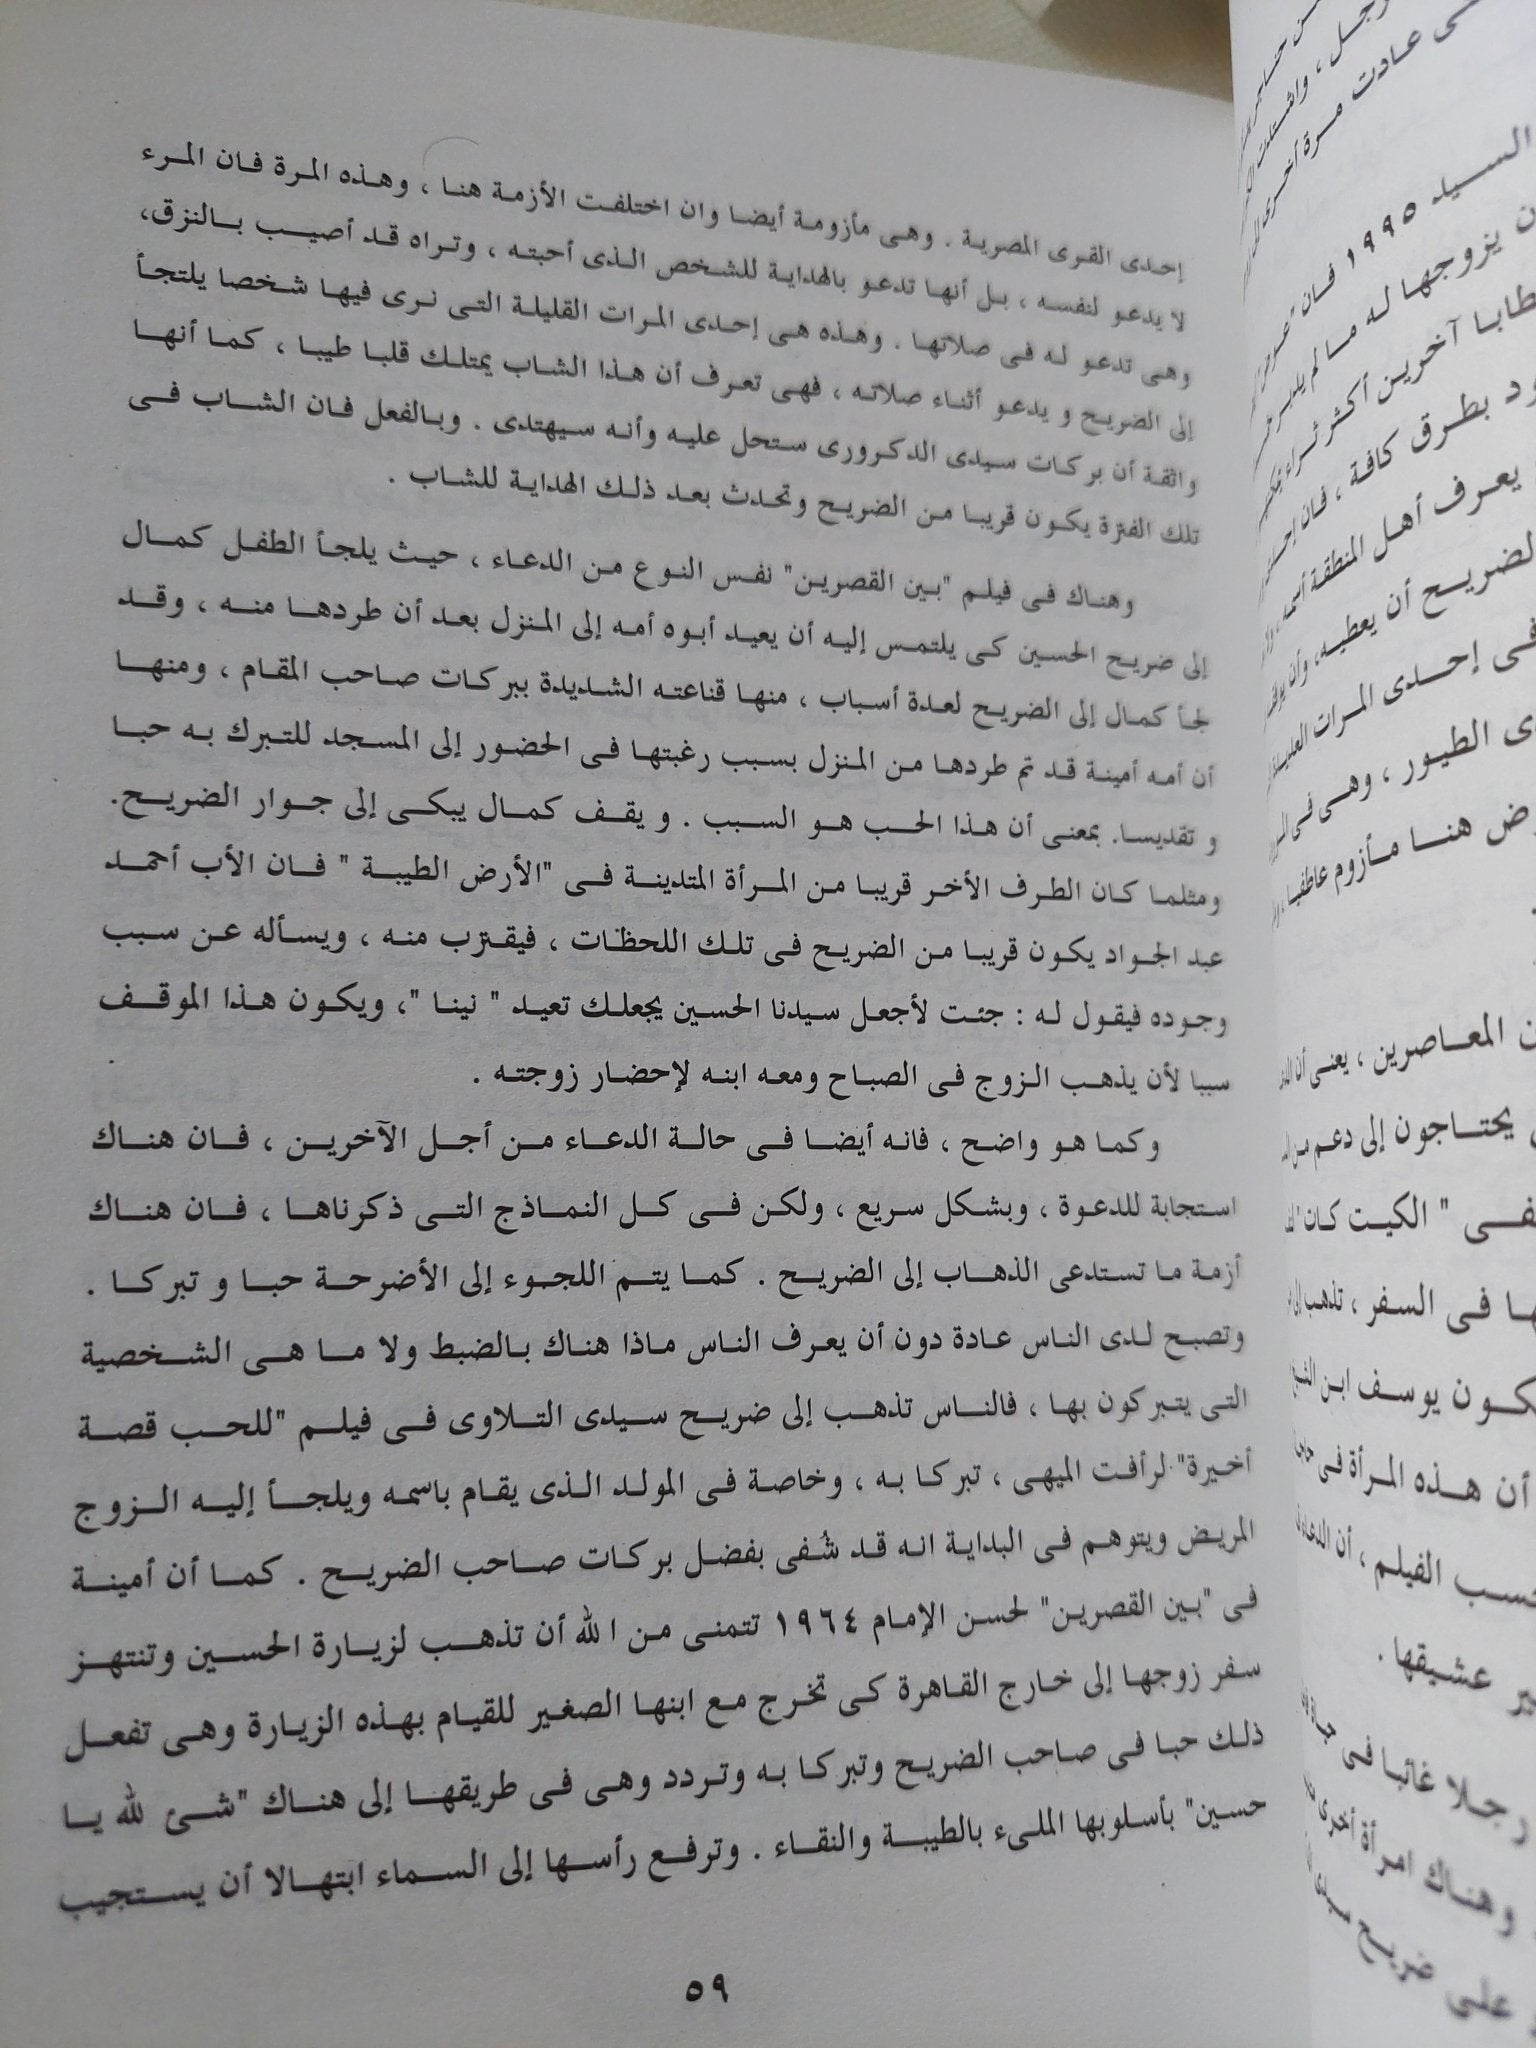 إحدى القرى المصرية . وهى مأزومة أيضا وان اختلفت الأزمة هنا ، وهذه المرة فان المرء
لا يدعو لنفسه ، بل أنها تدعو بالهداية للشخص الذى أحبته ، وتراه قد أصيب بالنزق،
وهى تدعو له فى صلاتها . وهذه هى إحدى المرات القليلة التى نرى فيها شخصا يلتجأ
إلى الضريح و يدعو أثناء صلاته ، فهى تعرف أن هذا الشاب يمتلك قلبا طيبا ، كما أنها
واثقة أن بركات سيدى الدكرورى ستحل عليه وأنه سيهتدى . وبالفعل فان الشاب فى
تلك الفترة يكون قريبا من الضريح وتحدث بعد ذلك الهداية للشاب .
وهناك فى فيلم "بين القصرين" نفس النوع من الدعاء ، حيث يلجأ الطفل كمال
إلى ضريح الحسين كى يلتمس إليه أن يعيد أبوه أمه إلى المنزل بعد أن طردها منه ، وقد
لجأ كمال إلى الضريح لعدة أسباب ، منها قناعته الشديدة ببركات صاحب المقام ، ومنها
أن أمه أمينة قد تم طردها من المنزل بسبب رغبتها فى الحضور إلى المسجد للتبرك به حبا
و تقديسا. بمعنى أن هذا الحب هو السبب . و يقف كمال يبكى إلى جوار الضريح.
ومثلما كان الطرف الأخر قريبا من المرأة المتدينة فى "الأرض الطيبة " فان الأب أحمد
عبد الجواد يكون قريبا من الضريح فى تلك اللحظات ، فيقترب منه ، ويسأله عن سبب
وجوده فيقول له : جئت لأجعل سيدنا الحسين يجعلك تعيد " نينا "، ويكون هذا الموقف
سببا لأن يذهب الزوج فى الصباح ومعه ابنه لإحضار زوجته .
وكما هو واضح ، فانه أيضا فى حالة الدعاء من أجل الآخرين ، فان هناك
استجابة للدعوة ، وبشكل سريع ، ولكن فى كل النماذج التى ذكرناها ، فان هناك
أزمة ما تستدعى الذهاب إلى الضريح . كما يتم اللجوء إلى الأضرحة حبا و تبركا .
وتصبح لدى الناس عادة دون أن يعرف الناس ماذا هناك بالضبط ولا ما هى الشخصية
التى يتبركون بها ، فالناس تذهب إلى ضريح سيدى التلاوى فى فيلم "للحب قصة
أخيرة" لرأفت الميهى ، تبركا به ، وخاصة فى المولد الذى يقام باسمه ويلجأ إليه الزوج
المريض ويتوهم فى البداية انه قد شُفى بفضل بركات صاحب الضريح . كما أن أمينة
فى "بين القصرين" لحسن الإمام ١٩٦٤ تتمنى من الله أن تذهب لزيارة الحسين وتنتهز
سفر زوجها إلى خارج القاهرة كى تخرج مع ابنها الصغير للقيام بهذه الزيارة وهى تفعل
ذلك حبا فى صاحب الضريح وتبركا به وتردد وهى فى طريقها إلى هناك "شئ لله يا
حسين" بأسلوبها الملىء بالطيبة والنقاء . وترفع رأسها إلى السماء ابتهالا أن يستجيب
٥٩
عادت مرة أخرى
السيد ١٩٩٥ فان
يزوجها له ما لم
آخرين أكثر ثراء
بطرق كافة ، فان
يعرف أهل المنطقة
أن يعطيه، وأن
فى إحدى المرات
الطيور ، وهى فى
هنا مأزوم عاطفيا
المعاصرين ، يعنى أن
يحتاجون إلى دعم من
" الكيت كان"
فى السفر ، تذهب إلى
يوسف ابن الشيخ
أن هذه المرأة فى
الفيلم ، أن الدعاء
عشيقها .
رجلا غائبا فى
وهناك امرأة أخرى
على ضريح سيدى